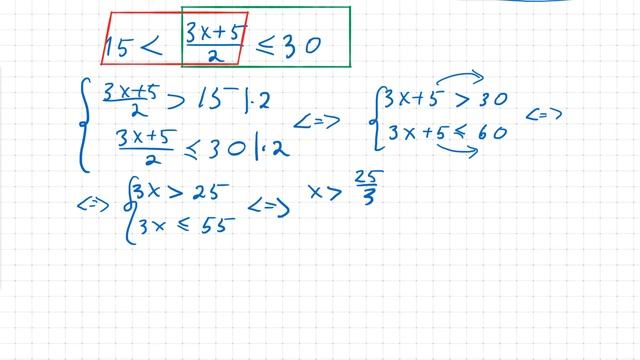 15 < (3x+5)/2 ≤ 30
(3x+5)/2 > 15 |·2
(3x+5)/2 ≤ 30 |·2
<=>
3x+5 > 30
3x+5 ≤ 60
<=>
<=>
3x > 25
3x ≤ 55
<=>
x > 25/3